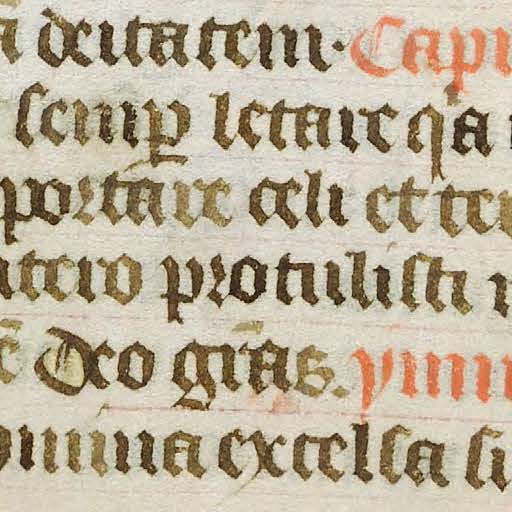 deitatem. Capi
semp letare qa
portare celi et ter
utero protulisti
Deo gras. ymn
omina excelsa